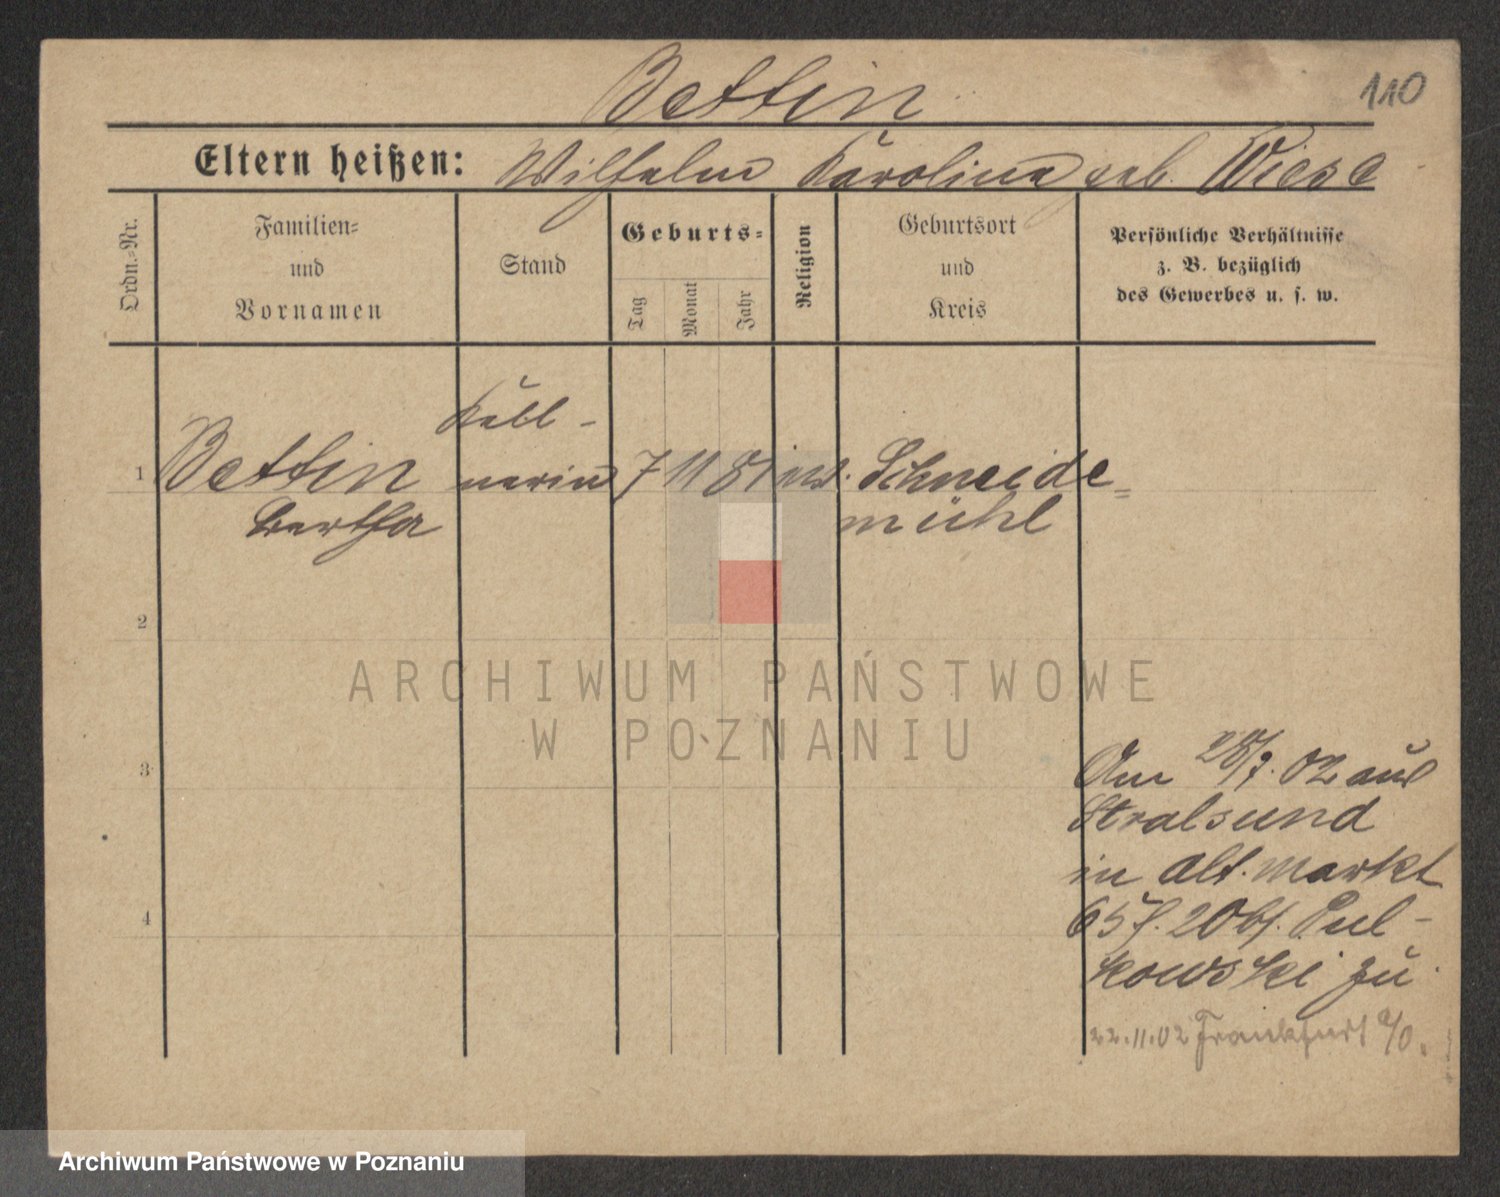 Bettin
110
Eltern heißen: Wilhelm Karoline geb. Wiese
Ordn.-Nr.
Familien-
und
Vornamen
Stand
Geburts-
Tag
Monat
Jahr
Religion
Geburtsort
und
Kreis
Persönliche Verhältnisse
z. B. bezüglich
des Gewerbes u. s. w.
Kell-
1 Bettin nerin 7 11 81 Schneide-
Bertha mühl
2
ARCHIWUM PAŃSTWOWE
W POZNANIU
3
Am 28/7. 02 aus
Stralsund
in Alt. Markt
4
65 20 bf. Pul-
kowski zu
22.11.02 Frankfurt a/O.
Archiwum Państwowe w Poznaniu